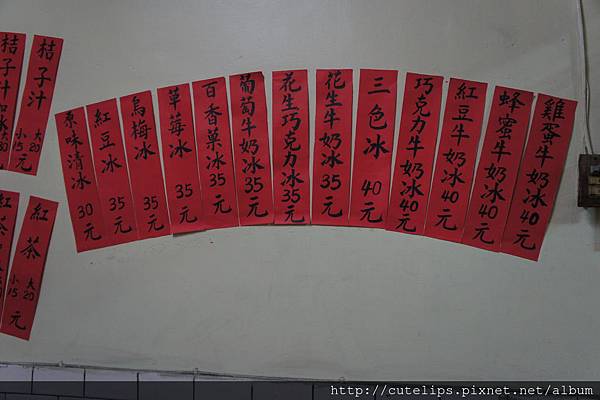 桔子汁加冰
桔子汁 大20 小15元
原味清冰 30元
紅豆冰 35元
烏梅冰 35元
草莓冰 35元
百香菓冰35元
葡萄牛奶冰35元
花生巧克力冰35元
花生牛奶冰35元
三色冰 40元
巧克力牛奶冰40元
紅豆牛奶冰40元
蜂蜜牛奶冰40元
雞蛋牛奶冰40元
紅茶
紅茶 大20 小15元
http://cutelips.pixnet.net/album